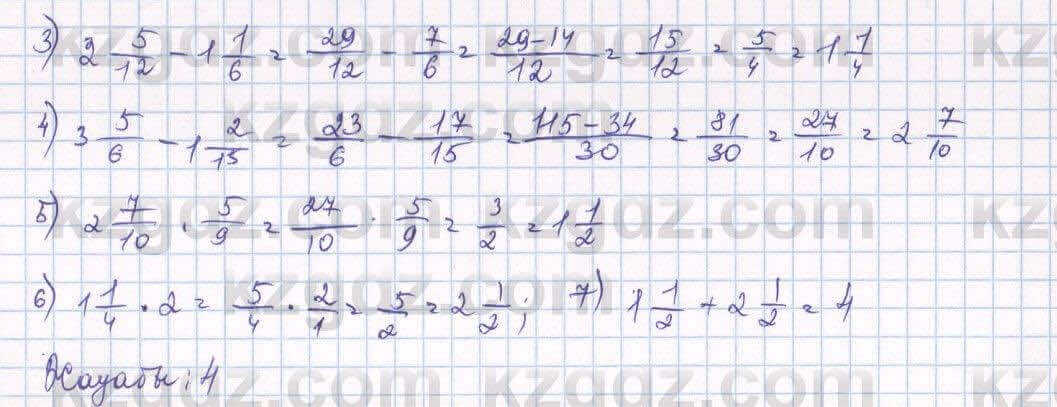 3) 2 5/12 - 1 1/6 = 29/12 - 7/6 = 29-14/12 = 15/12 = 5/4 = 1 1/4
4) 3 5/6 - 1 2/15 = 23/6 - 17/15 = 115-34/30 = 81/30 = 27/10 = 2 7/10
5) 2 7/10 · 5/9 = 27/10 · 5/9 = 3/2 = 1 1/2
6) 1 1/4 · 2 = 5/4 · 2/1 = 5/2 = 2 1/2; 7) 1 1/2 + 2 1/2 = 4
Жауабы: 4
kzgdz.com